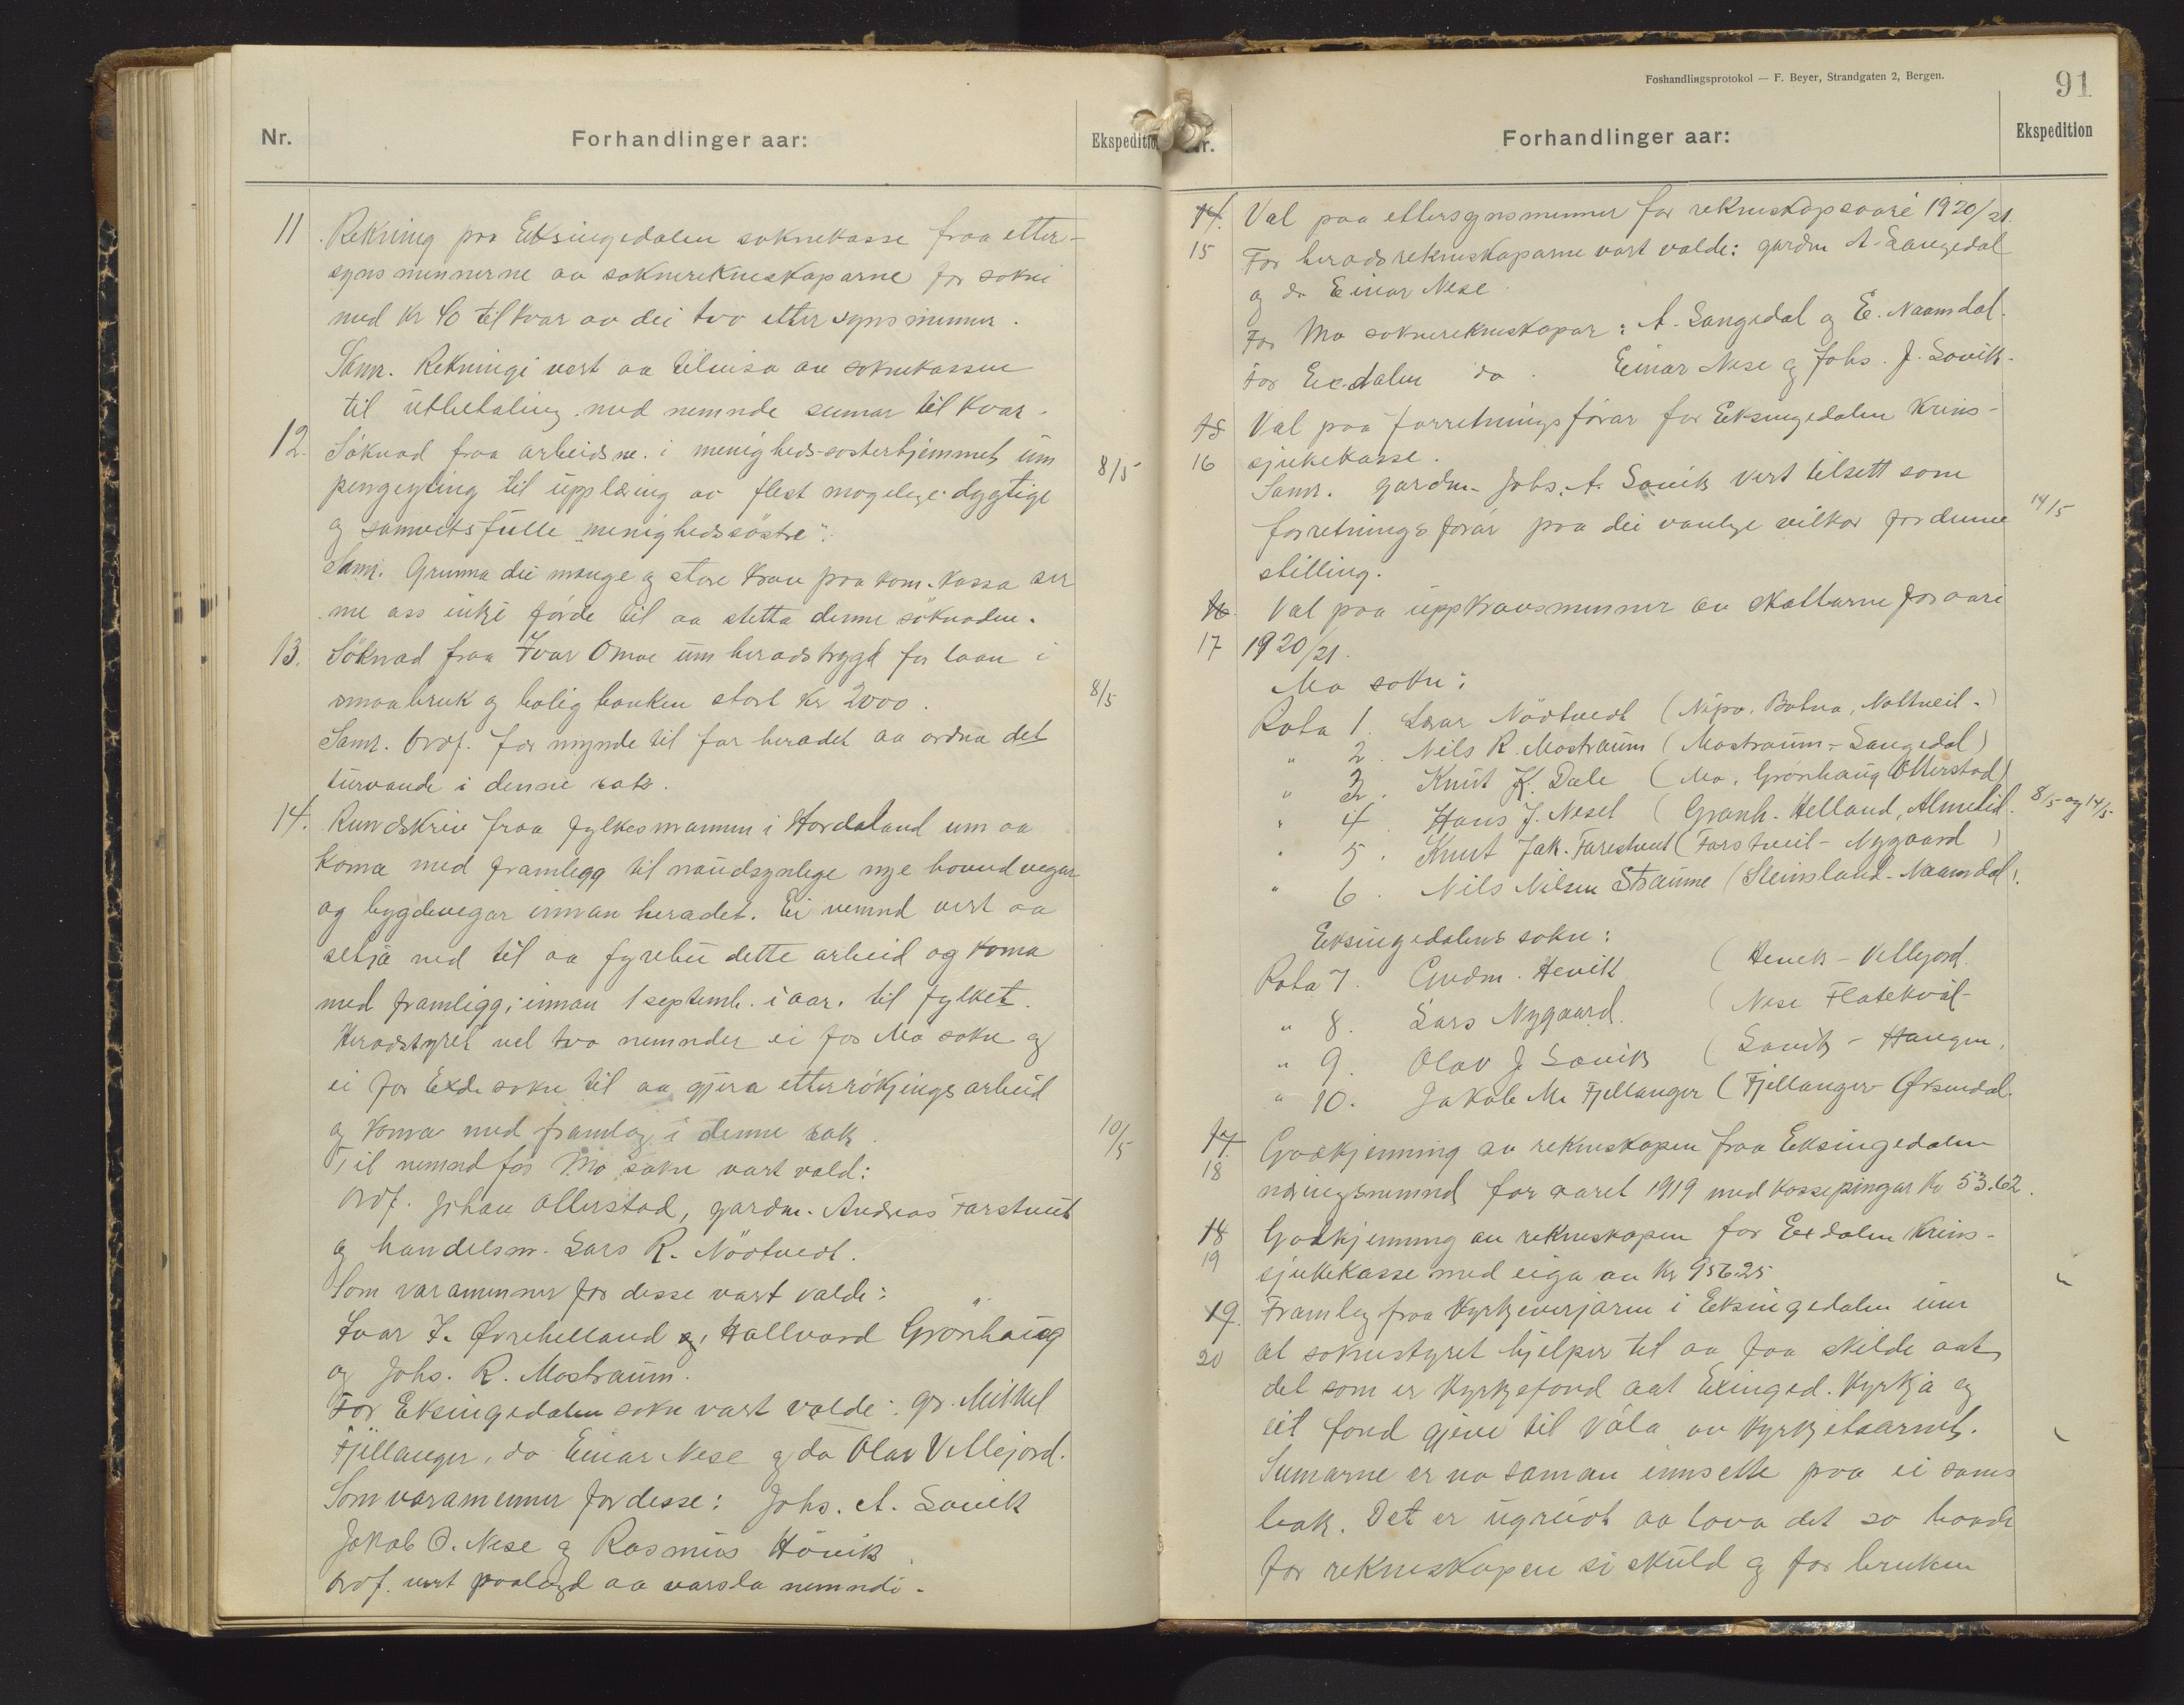 Nr.
Forhandlinger aar:
Ekspedition
11. Rekning paa Eksingedalen soknekasse fraa etter-
synsmennerne av soknerekneskaparne for sokni
med kr 40 til kvar av dei tvo ettersynsmenner.
Samr. Rekningi vert aa tilvisa av soknekassen
til utbetaling med nemnde sumar til kvar.
12. Söknad fraa arbeidsne. i menigheds-søsterhjemmet um
pengeyting til upplæring av flest mogelege dygtige
og samvitsfulle "menighedssöstre".
8/5
Samr. Grunna dei mange og store krav paa kom. kassa ser
me oss inkje förde til aa stetta denne söknaden.
13. Söknad fraa Ivar Omoe um heradstrygd for laan i
smaabruk og bolig banken stort kr 2000.
8/5
Samr. Ordf. for mynde til for heradet aa ordna det
turvande i denne sak.
14. Rundskriv fraa fylkesmannen i Hordaland um aa
koma med framlegg til naudsynlege nye hovudvegar
og bygdevegar innan heradet. Ei nemnd vert aa
setja ned til aa fyrebu dette arbeid og koma
med framlegg; innan 1 septemb. i aar. til fylket.
Heradstyret vel tvo nemnder ei for Mo sokn og
ei for Exd. sokn til aa gjera etterrökjingsarbeid
og koma med framlag i denne sak.
10/5
Til nemnd for Mo sokn vart vald:
Ordf. Johan Otterstad, gardm. Andreas Farstveit
og handelsm. Lars R. Nödtvedt.
Som varamenner for desse vart valde:
Ivar J. Øvrehelland og, Hallvard Grönhaug
og Johs. R. Mostraum.
For Eksingedalen sokn vart valde: gr. Mikkel
Fjellanger, do Einar Nese og do Olav Vetlejord.
Som varamenner for desse: Johs. A. Lavik
Jakob O. Nese og Rasmus Hövik.
Ordf. vert paalagd aa varsla nemndi.
Foshandlingsprotokol — F. Beyer, Strandgaten 2, Bergen.
91
Nr.
Forhandlinger aar:
Ekspedition
14. Val paa ettersynsmenner for rekneskapsaari 1920/21.
15 For heradsrekneskaparne vart valde: gardm A. Langedal
og do Einar Nese.
For Mo soknerekneskapar: A. Langedal og E. Naamdal.
For Exdalen do. Einar Nese og Johs. J. Lavik.
15 Val paa forretningsförar for Eksingedalen krins-
16 sjukekasse.
Samr. gardm. Johs. A. Lavik vert tilsett som
forretningsförar paa dei vanlege vilkor for denne
14/5
stilling.
16 Val paa uppkravsmenner av skattarne for aari
17 1920/21.
Mo sokn:
Rota 1. Lærar Nödtvedt (Nipo, Botna, Noltveit.)
" 2. Nils R. Mostraum (Mostraum - Langedal)
" 3. Knut K. Dale (Mo, Grönhaug Otterstad)
" 4. Hans J. Neset (Granh. Helland, Almelid.
8/5 og 14/5.
" 5. Knut Jak. Farestveit (Farstveit - Nygaard)
" 6. Nils Nilsen Straume (Steinsland - Naamdal).
Eksingedalens sokn:
Rota 7. Gudm. Hevik (Hevik - Vetlejord.
" 8. Lars Nygaard. (Nese Flatekvál-
" 9. Olav J Lavik (Lavik - Haugen.
" 10. Jakob M. Fjellanger (Fjellanger - Øksendal.
17 Godkjenning av rekneskapen fraa Eksingedalen
18 næringsnemnd for aaret 1919 med kassepengar kr 53.62.
18 Godkjenning av rekneskapen for Exdalen krins-
19 sjukekasse med eiga av kr 956.25
19. Framleg fraa kyrkjeverjarne i Eksingedalen um
20 at soknestyret hjelper til aa faa skilde aat
det som er kyrkjefond aat Exinged. kyrkja og
eit fond gjeve til völa av kyrkjetaarnet.
Sumarne er no saman innsette paa ei sams
bok. Det er ugreidt aa lova det so baade
for rekneskapen si skuld og for bruken